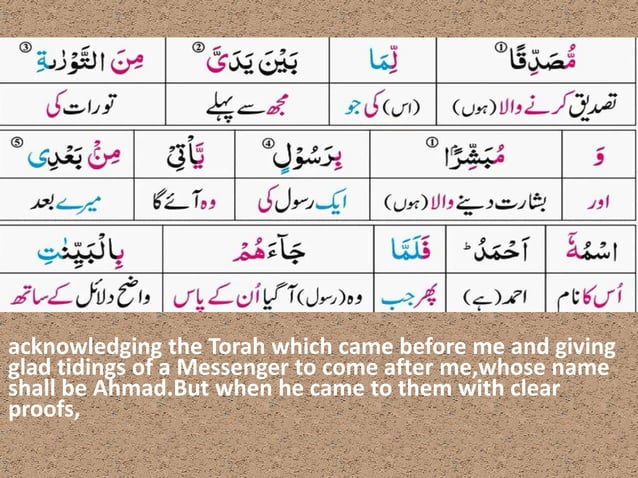 مُّصَدِّقًا① لِّمَا بَيْنَ يَدَىَّ② مِنَ التَّوْرٰىةِ③
تصدیق کرنے والا (ہوں) (اس) کی جو مجھ سے پہلے تورات کی
وَ مُبَشِّرًۢا① بِرَسُوْلٍ④ يَّاْتِىْ مِنْۢ بَعْدِى⑤
اور بشارت دینے والا (ہوں) ایک رسول کی وہ آئے گا میرے بعد
اسْمُهٗۤ اَحْمَدُ ؕ فَلَمَّا جَآءَهُمْ بِالْبَيِّنٰتِ
اُس کا نام احمد (ہے) پھر جب وہ (رسول) آ گیا اُن کے پاس واضح دلائل کے ساتھ
acknowledging the Torah which came before me and giving
glad tidings of a Messenger to come after me,whose name
shall be Ahmad.But when he came to them with clear
proofs,